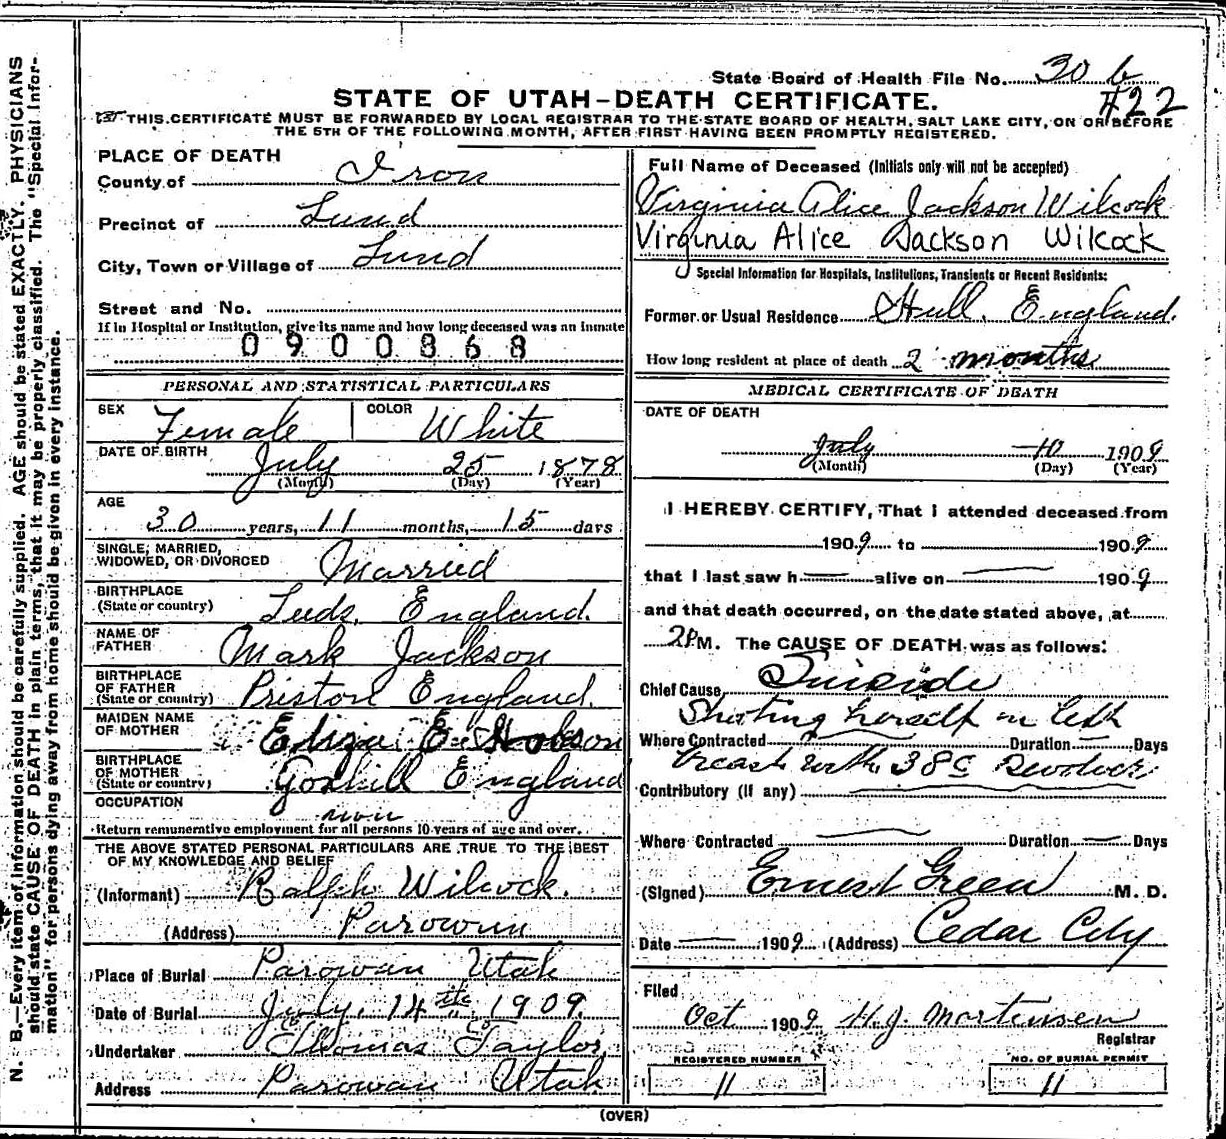 State Board of Health File No. 30 b
#22
STATE OF UTAH-DEATH CERTIFICATE.
THIS CERTIFICATE MUST BE FORWARDED BY LOCAL REGISTRAR TO THE STATE BOARD OF HEALTH, SALT LAKE CITY, ON OR BEFORE
THE 5TH OF THE FOLLOWING MONTH, AFTER FIRST HAVING BEEN PROMPTLY REGISTERED.
N. B.—Every item of information should be carefully supplied. AGE should be stated EXACTLY. PHYSICIANS
should state CAUSE OF DEATH in plain terms, that it may be properly classified. The "Special Infor-
mation" for persons dying away from home should be given in every instance.
PLACE OF DEATH
County of Iron
Precinct of Lund
City, Town or Village of Lund
Street and No.
If in Hospital or Institution, give its name and how long deceased was an inmate
0900868
PERSONAL AND STATISTICAL PARTICULARS
SEX Female COLOR White
DATE OF BIRTH July 25 1878
(Month) (Day) (Year)
AGE
30 years, 11 months, 15 days
SINGLE, MARRIED,
WIDOWED, OR DIVORCED Married
BIRTHPLACE
(State or country) Leeds, England.
NAME OF
FATHER Mark Jackson
BIRTHPLACE
OF FATHER
(State or country) Priston England.
MAIDEN NAME
OF MOTHER Eliza E. Hobson
BIRTHPLACE
OF MOTHER
(State or country) Goxhill England
OCCUPATION non
Return remunerative employment for all persons 10 years of age and over.
THE ABOVE STATED PERSONAL PARTICULARS ARE TRUE TO THE BEST
OF MY KNOWLEDGE AND BELIEF
(Informant) Ralph Wilcock.
(Address) Parowan
Place of Burial Parowan Utah
Date of Burial July, 14th 1909.
Undertaker Thomas Taylor
Address Parowan Utah
Full Name of Deceased (Initials only will not be accepted)
Virginia Alice Jackson Wilcock
Virginia Alice Jackson Wilcock
Special Information for Hospitals, Institutions, Transients or Recent Residents:
Former or Usual Residence Hull, England.
How long resident at place of death 2 months
MEDICAL CERTIFICATE OF DEATH
DATE OF DEATH
July 10 1909
(Month) (Day) (Year)
I HEREBY CERTIFY, That I attended deceased from
1909 to 1909
that I last saw h alive on 1909
and that death occurred, on the date stated above, at
2 P M. The CAUSE OF DEATH was as follows:
Chief Cause, Suicide
Shooting herself in left
Where Contracted Duration Days
breast with 38c Revolver
Contributory (if any)
Where Contracted Duration Days
(Signed) Ernest Green M. D.
Date 1909 (Address) Cedar City
Filed
Oct 1909 H.J. Mortensen
Registrar
REGISTERED NUMBER
11
NO. OF BURIAL PERMIT
11
(OVER)